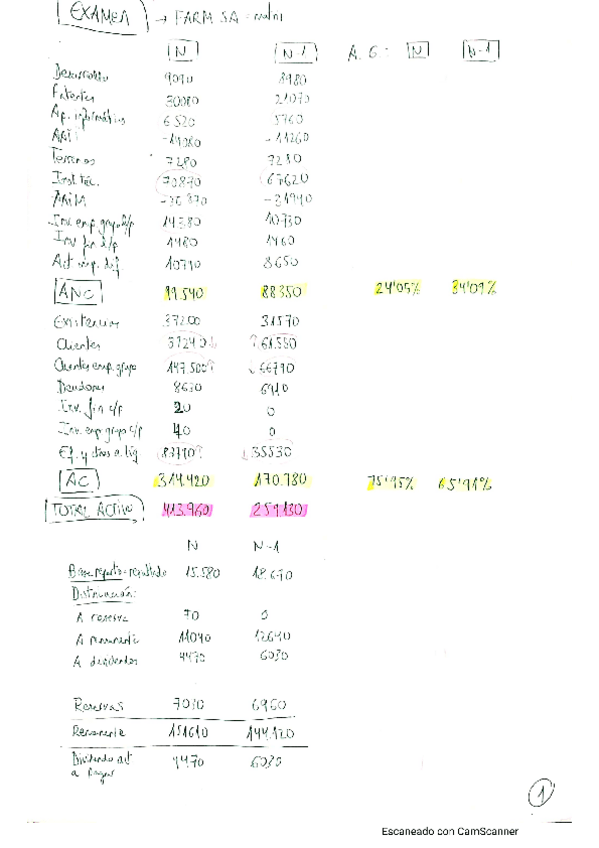 EXAMEN → FARM SA
N N-1 A. C.: N N-1
Desarrollo 9090 8980
Patentes 30080 21070
Ap. informática 6520 5760
AAII -14080 -11260
Terrenos 7280 7280
Inst téc. 70870 67620
AAIM -36870 -31940
Inv. emp. grupo l/p 14380 10730
Inv fin l/p 1480 1460
Act imp. dif 10790 8650
ANC 99.540 88350 24'05% 34'09%
Existencias 37200 31570
Clientes 37240 61.550
Clientes emp. grupo 147.500 66790
Deudores 8630 6910
Inv. fin c/p 20 0
Inv. emp grupo c/p 40 0
Ef. y otros a. líq. 83790 35530
AC 314.420 170.780 75'95% 65'91%
TOTAL ACTIVO 413.960 259.130
N N-1
Base reparto = resultado 15.580 18.670
Distribución:
A reservas 70 0
A remanente 11040 12640
A dividendos 4470 6030
Reservas 7030 6960
Remanente 151610 144.120
Dividendo act 4470 6030
a pagar
1
Escaneado con CamScanner